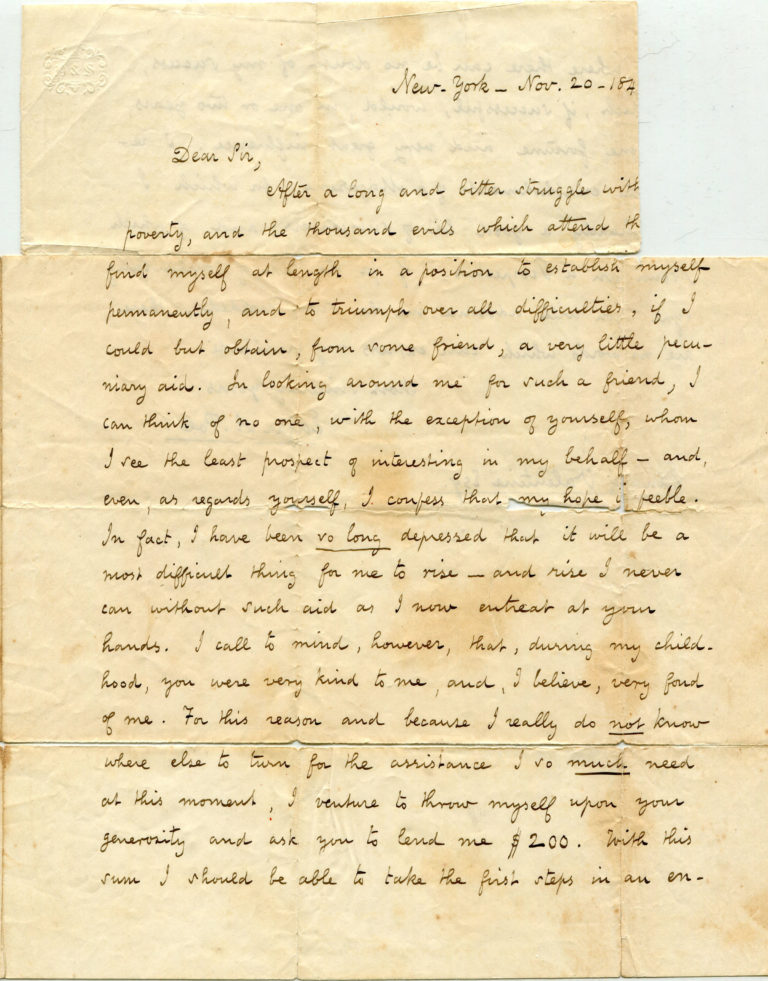 New-York – Nov. 20 – 184
Dear Sir,
After a long and bitter struggle with
poverty, and the thousand evils which attend th
find myself at length in a position to establish myself
permanently, and to triumph over all difficulties, if I
could but obtain, from some friend, a very little pecu-
niary aid. In looking around me for such a friend, I
can think of no one, with the exception of yourself, whom
I see the least prospect of interesting in my behalf – and,
even, as regards yourself, I confess that my hope is feeble.
In fact, I have been so long depressed that it will be a
most difficult thing for me to rise – and rise I never
can without such aid as I now entreat at your
hands. I call to mind, however, that, during my child-
hood, you were very kind to me, and, I believe, very fond
of me. For this reason and because I really do not know
where else to turn for the assistance I so much need
at this moment, I venture to throw myself upon your
generosity and ask you to lend me $200. With this
sum I should be able to take the first steps in an en-